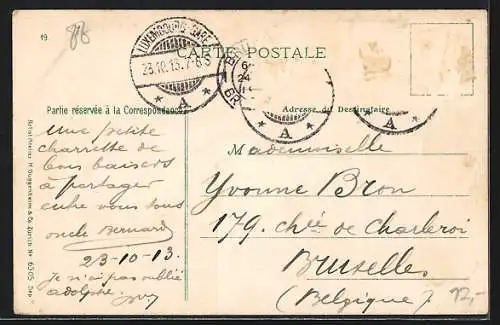 19
CARTE POSTALE
LUXEMBOURG-GARE
23.10.13.7-8 S
A
A
A
Partie réservée à la Correspondance
Adresse du Destinataire
Une petite
charrette de
bons baisers
à partager
entre vous tous
oncle Bernard
23-10-13
je n'ai pas oublié
adolphe
Mademoiselle
Yvonne Bron
179. chée de Charleroi
Bruxelles
(Belgique)
12,-